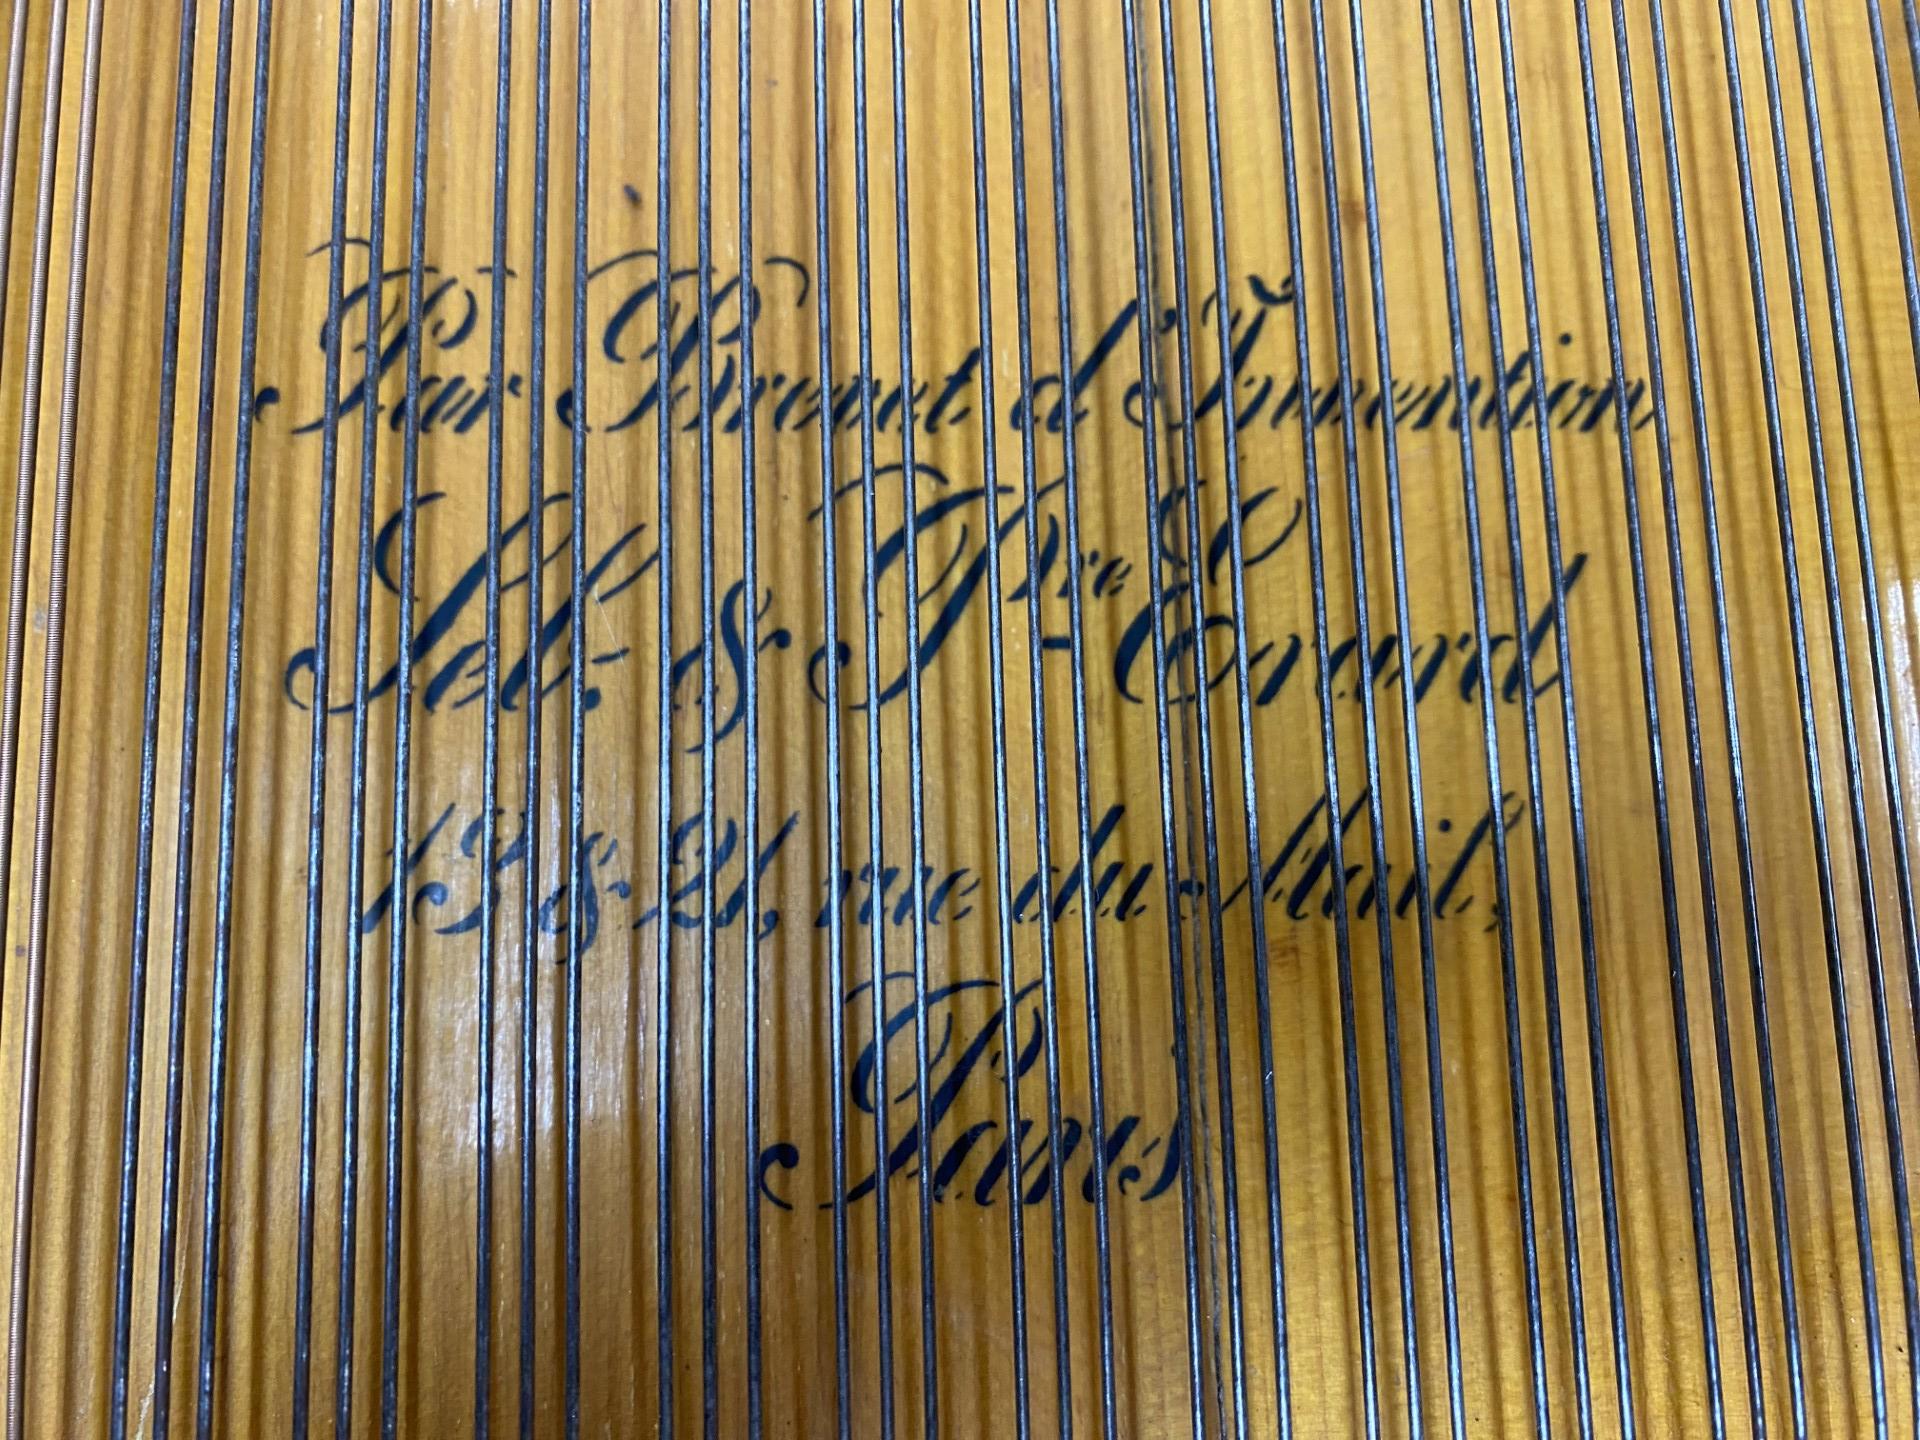 Par Brevet d'Invention
Seb. & Pre Erard
13 & 21, rue du Mail,
Paris